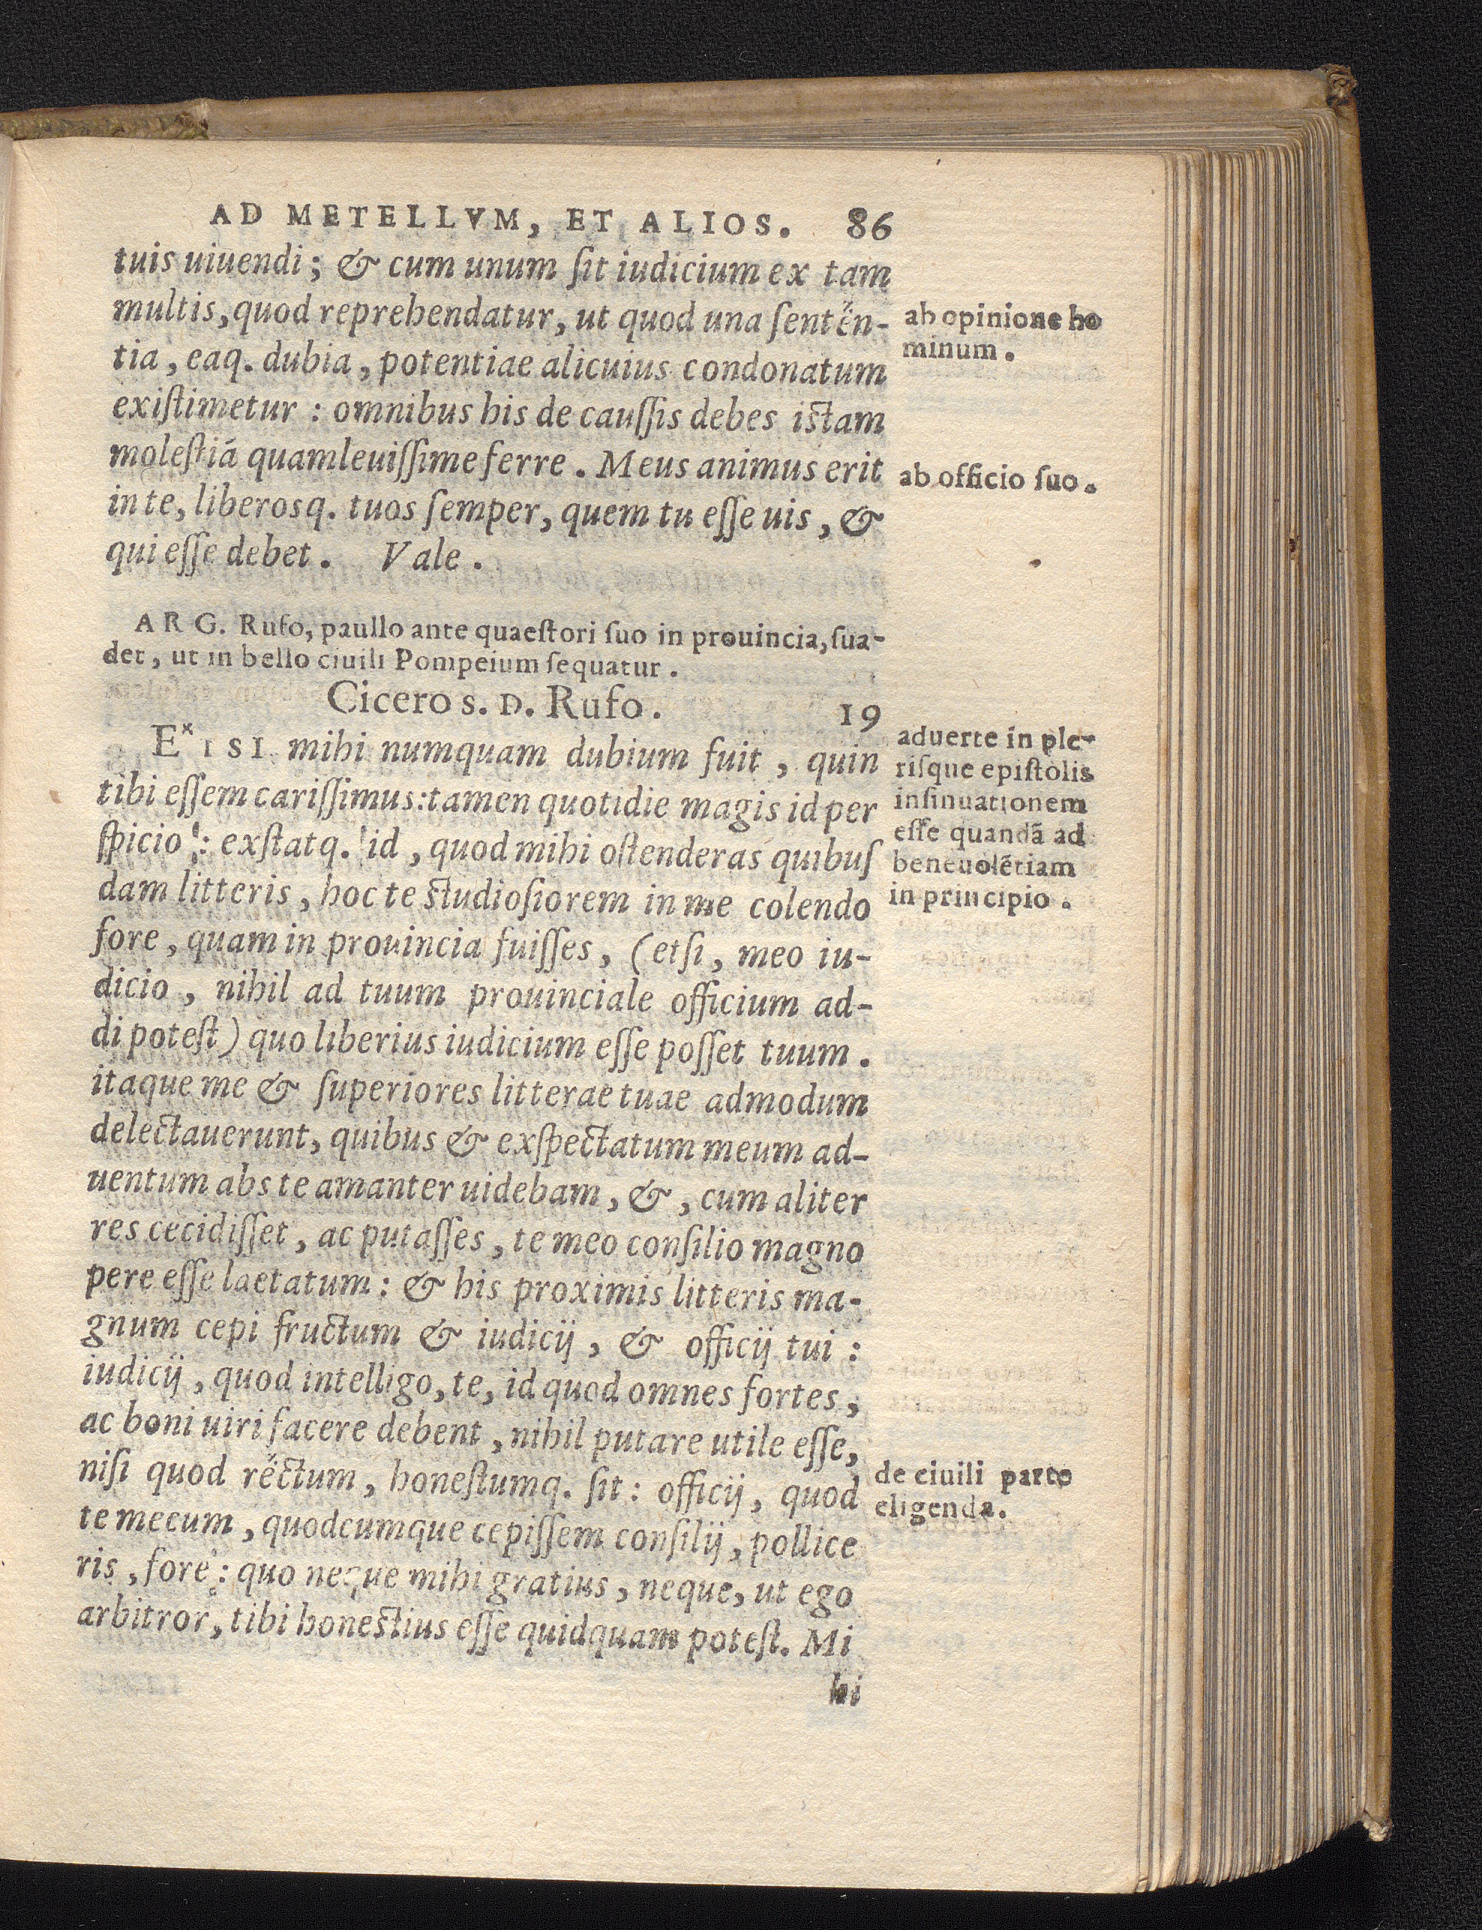 AD METELLVM, ET ALIOS. 86
tuis uiuendi; & cum unum ſit iudicium ex tam
multis, quod reprehendatur, ut quod una ſentẽn-
tia, eaq. dubia, potentiae alicuius condonatum
exiſtimetur: omnibus his de cauſſis debes istam
moleſtiã quamleuiſſime ferre. Meus animus erit
in te, liberosq. tuos ſemper, quem tu eſſe uis, &
qui eſſe debet. Vale.
ab opinione ho
minum.
ab officio ſuo.
ARG. Rufo, paullo ante quaeſtori ſuo in prouincia, ſua-
det, ut in bello ciuili Pompeium ſequatur.
Cicero s. D. Rufo. 19
EˣISI mihi numquam dubium fuit, quin
tibi eſſem cariſſimus: tamen quotidie magis id per
ſpicio: exſtatq. id, quod mihi oſtenderas quibuſ
dam litteris, hoc te studioſiorem in me colendo
fore, quam in prouincia fuiſſes, (etſi, meo iu-
dicio, nihil ad tuum prouinciale officium ad-
di poteſt) quo liberius iudicium eſſe poſſet tuum.
itaque me & ſuperiores litterae tuae admodum
delectauerunt, quibus & exſpectatum meum ad-
uentum abs te amanter uidebam, &, cum aliter
res cecidiſſet, ac putaſſes, te meo conſilio magno
pere eſſe laetatum: & his proximis litteris ma-
gnum cepi fructum & iudicij, & officij tui:
iudicij, quod intelligo, te, id quod omnes fortes,
ac boni uiri facere debent, nihil putare utile eſſe,
niſi quod rectum, honeſtumq. ſit: officij, quod
te mecum, quodcumque cepiſſem conſilij, pollice
ris, fore: quo neque mihi gratius, neque, ut ego
arbitror, tibi honestius eſſe quidquam poteſt. Mi
hi
aduerte in ple-
riſque epiſtolis
inſinuationem
eſſe quandã ad
beneuolẽtiam
in principio.
de ciuili parte
eligenda.